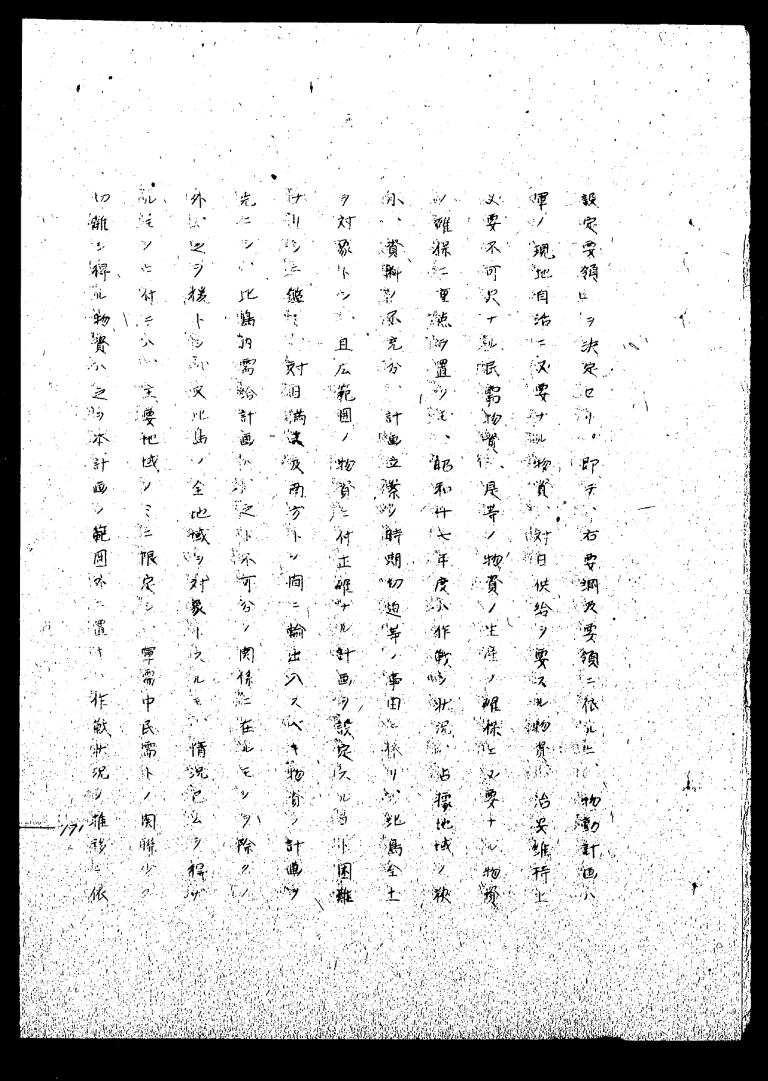 設定要領」ヲ決定セリ。即チ、右要綱及要領ニ依ルト、物動計画ハ
軍ノ現地自治ニ必要ナル物資、対日供給ヲ要スル物資、治安維持上
必要不可欠ナル民需物資、是等ノ物資ノ生産ノ確保ニ必要ナル物資
ノ確保ニ重点ヲ置クモ、昭和廿七年度ハ作戦ノ状況、占據地域ノ狭
小、資料ノ不充分、計画立案ノ時期切迫等ノ事由ニ依リ、比島全土
ヲ対象トシ、且広範囲ノ物資ニ付正確ナル計画ヲ設定スルコト困難
ナリシニ鑑ミ、対日満支及南方トノ間ニ輸出入スベキ物資ノ計画ヲ
先ニシ、比島内需給計画ハ、之ト不可分ノ関係ニ在ルモノヲ除クノ
外、之ヲ後トシ、又比島ノ全地域ヲ対象トスルモ、情況已ムヲ得ザ
ルモノニ付テハ、主要地域ノミニ限定シ、軍需中民需トノ関聯少ク
切離シ得ル物資ハ之ヲ本計画ノ範囲外ニ置キ、作戦状況ノ推移ニ依
171